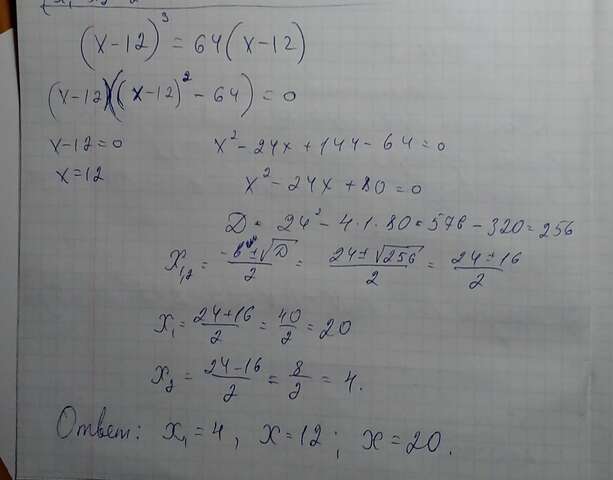 (x-12)³ = 64(x-12)
(x-12)((x-12)² - 64) = 0
x-12=0
x=12
x² - 24x + 144 - 64 = 0
x² - 24x + 80 = 0
D = 24² - 4·1·80 = 576 - 320 = 256
x₁,₂ = (-b±√D)/2 = (24±√256)/2 = (24±16)/2
x₁ = (24+16)/2 = 40/2 = 20
x₂ = (24-16)/2 = 8/2 = 4.
Ответ: x₁=4, x=12; x=20.